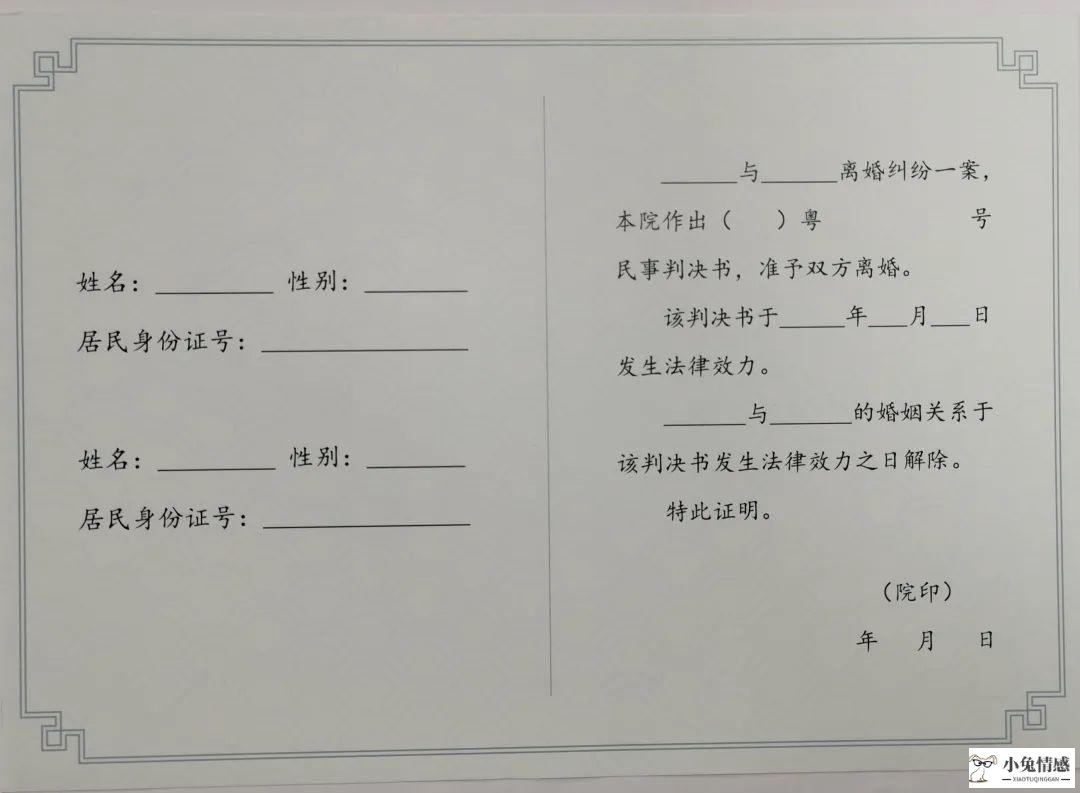 姓名：________ 性别：_______
居民身份证号：______________
姓名：________ 性别：_______
居民身份证号：______________
______与______离婚纠纷一案，
本院作出（　　）粤　　　　　　号
民事判决书，准予双方离婚。
该判决书于_____年___月___日
发生法律效力。
______与______的婚姻关系于
该判决书发生法律效力之日解除。
特此证明。
（院印）
年　月　日
小兔情感
XIAOTUQINGGAN